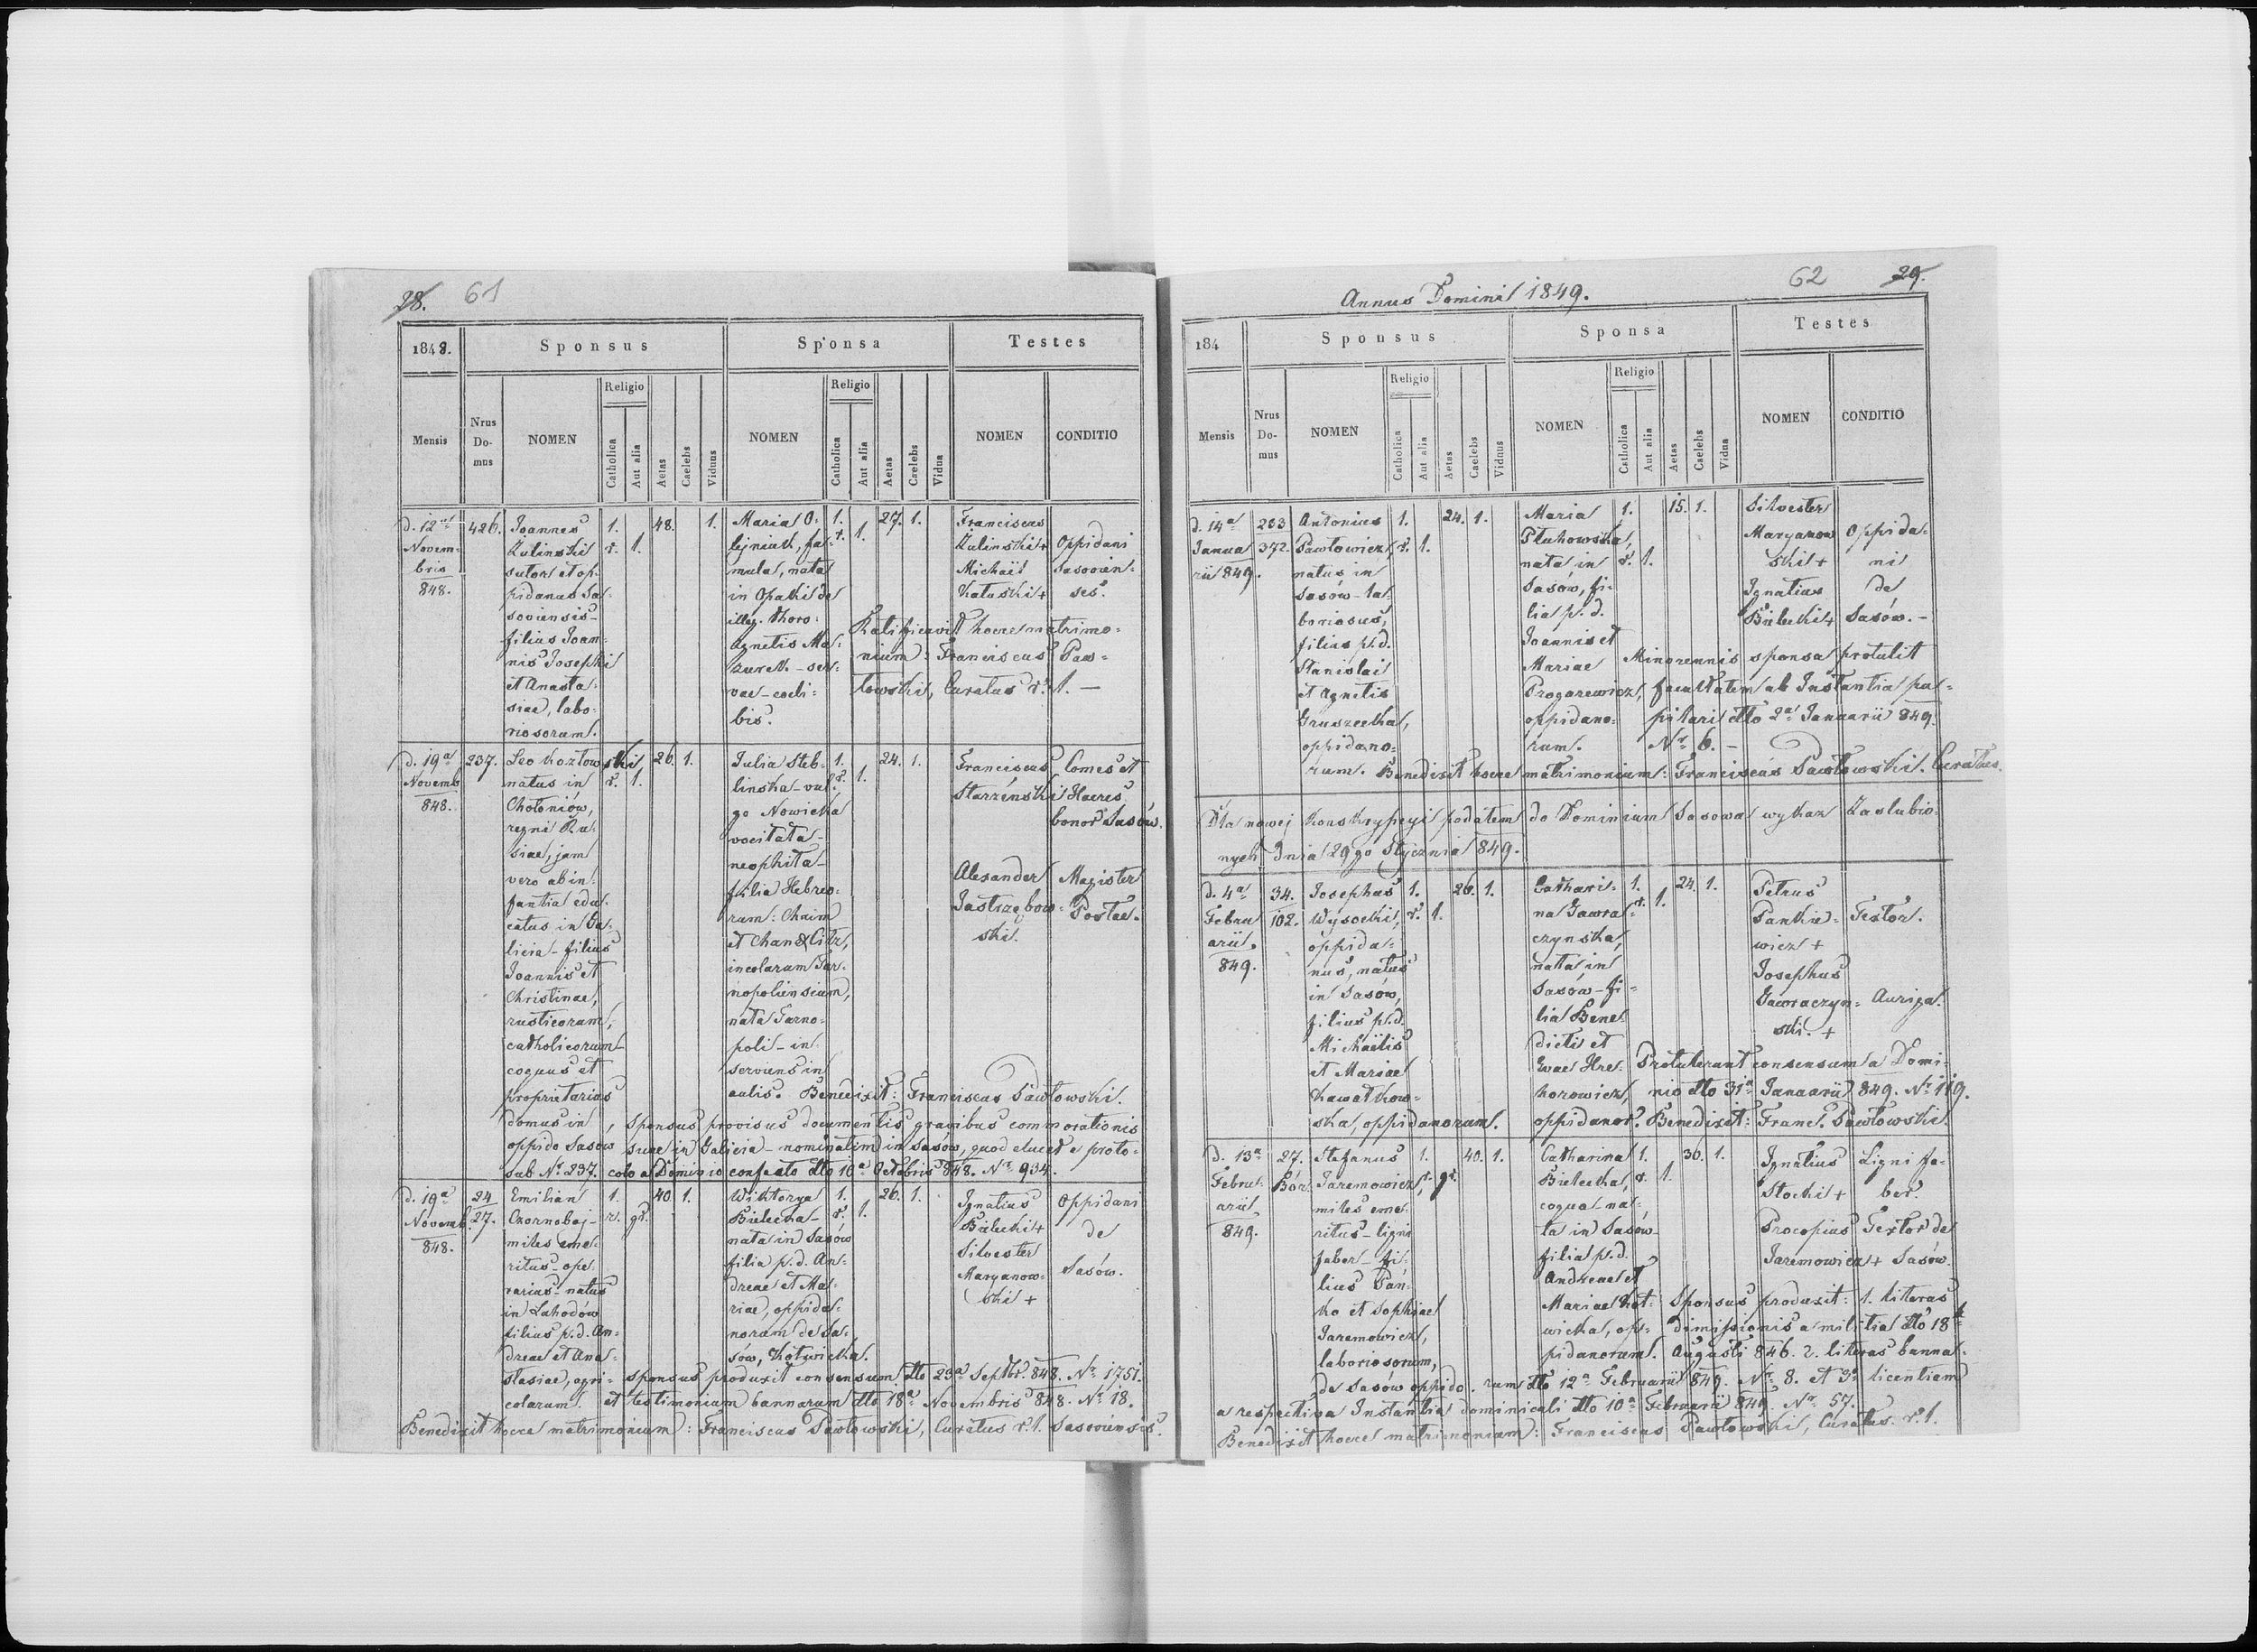 28. 61
1848.
Sponsus
Sponsa
Testes
Mensis
Nrus Do-mus
NOMEN
Religio
Catholica
Aut alia
Aetas
Caelebs
Viduus
NOMEN
Religio
Catholica
Aut alia
Aetas
Caelebs
Vidua
NOMEN
CONDITIO
d. 12a
Novem-
bris
848.
426.
Joannes
Zulinski
sutor et op-
pidanus Sa-
soviensis-
filius Joan-
nis Josephi
et Anasta-
siae, labo-
riosorum.
1.
r. l.
48.
1.
Maria O-
lejniak, fa-
mula, nata
in Opaki de
illeg. thoro:
Agnetis Ma-
zurek - ser-
vae - coeli-
bis.
1.
r. l.
27. 1.
Franciscus
Zulinski +
Michaël
Katuski +
Oppidani
Sasovien-
ses.
Ratificavit hocce matrimo-
nium: Franciscus Paw-
łowski, Curatus r. l. -
d. 19a
Novemb.
848.
237.
Leo Kozłowski
natus in
Chołoniów,
regni Ru-
siae, jam
vero ab in-
fantia edu-
catus in Ga-
licia - filius
Joannis et
Christinae,
rusticorum,
catholicorum-
coquus et
proprietarius
domus in
oppido Sasow
sub No. 237.
r. l.
26. 1.
Julia Steb-
linska - vul-
go Nowicka
vocitata -
neophita -
filia Hebreo-
rum: Chaim
et Chane
incolarum Tar-
nopoliensium,
nata Tarno-
poli - in-
serviens in
aulis.
1.
r. l.
24. 1.
Franciscus
Starzenski
Comes et
Haeres
bonor. Sasów.
Alexander
Jastrzębow-
ski.
Magister
Postae.
Benedixit: Franciscus Pawłowski.
, sponsus provisus documentis gravibus commorationis
suae in Galicia - nominatim in Sasów, quod elucet e proto-
colo a Dominio confecto dto 10a Octobris 848. Nr. 934.
d. 19a
Novemb.
848.
24
27.
Emilian
Czornobaj -
miles eme-
ritus - ope-
rarius - natus
in Lahodów
filius p. d. An-
dreae et Ana-
stasiae, agri-
colarum.
1.
r. gr.
40. 1.
Wiktorya
Bielecka -
nata in Sasów
filia p. d. An-
dreae et Ma-
riae, oppida-
norum de Sa-
sów, Kotwicka.
1.
r. l.
26. 1.
Ignatius
Bielecki +
Silvester
Maryanow-
ski +
Oppidani
de
Sasów.
sponsus produxit consensum dto 23a Septbr. 848. Nr. 1751.
et testimonium bannorum dto 18a Novembris 848. Nr. 18.
Benedixit hocce matrimonium: Franciscus Pawłowski, Curatus r. l. Sasoviensis.
Annus Domini 1849.
62 29.
184
Sponsus
Sponsa
Testes
Mensis
Nrus Do-mus
NOMEN
Religio
Catholica
Aut alia
Aetas
Caelebs
Viduus
NOMEN
Religio
Catholica
Aut alia
Aetas
Caelebs
Vidua
NOMEN
CONDITIO
d. 14a
Janua-
rii 849.
233
372.
Antonius
Pawłowicz,
natus in
Sasów - la-
boriosus,
filius p. d.
Stanislai
et Agnetis
Gruszecka,
oppidano-
rum.
1.
r. l.
24. 1.
Maria
Płuhowska,
nata in
Sasów, fi-
lia p. d.
Joannis et
Mariae
Progorewicz,
oppidano-
rum.
1.
r. l.
15. 1.
Silvester
Maryanow
ski +
Ignatius
Bielecki +
Oppida-
ni
de
Sasów. -
Minorennis sponsa protulit
facultatem ab Instantia pu-
pilari dto 2a Januarii 849.
Nr. 6. -
Benedixit hocce matrimonium: Franciscus Pawłowski. Curatus.
Dla nowej konskrypcyi podałem do Dominium Sasowa wykaz Zaslubio-
nych dnia 29go Stycznia 849.
d. 4a
Febru-
arii.
849.
34.
102.
Josephus
Wysocki,
oppida-
nus, natus
in Sasów,
filius p. d.
Michaëlis
et Mariae
Kawałkow-
ska, oppidanorum.
1.
r. l.
26. 1.
Cathari-
na Gawra-
czynska,
nata in
Sasów - fi-
lia Bene-
dicti et
Evae Hre-
horowicz,
oppidanor.
1.
r. l.
24. 1.
Petrus
Pankie-
wicz +
Josephus
Gawraczyn-
ski. +
Textor.
Auriga.
Protulerant consensum a Domi-
nio dto 31a Januarii 849. Nr. 119.
Benedixit: Franc. Pawłowski.
d. 13a
Febru-
arii
849.
27.
Bór.
Stefanus
Jaremowicz,
miles eme-
ritus - ligni
faber - fi-
lius Pan-
ko et Sophiae
Jaremowicz,
laboriosorum,
de Sasów oppido.
1.
r. gr.
40. 1.
Catharina
Bielecka,
coqua - na-
ta in Sasow -
filia p. d.
Andreae et
Mariae Kot-
wicka, op-
pidanorum.
1.
r. l.
36. 1.
Ignatius
Stocki +
Ligni fa-
ber.
Procopius
Jaremowicz +
Textor de
Sasów.
Sponsus produxit: 1. litteras
dimissionis a militia dto 18a
Augusti 846. 2. literas banna-
rum dto 12a Februarii 849. Nr. 8. et 3. licentiam
a respectiva Instantia dominicali dto 10a Februarii 849. Nr. 57.
Benedixit hocce matrimonium: Franciscus Pawłowski, Curatus. r. l.